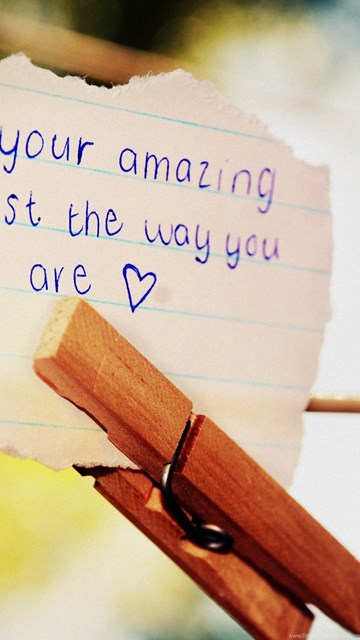 your amazing
st the way you
are ♡